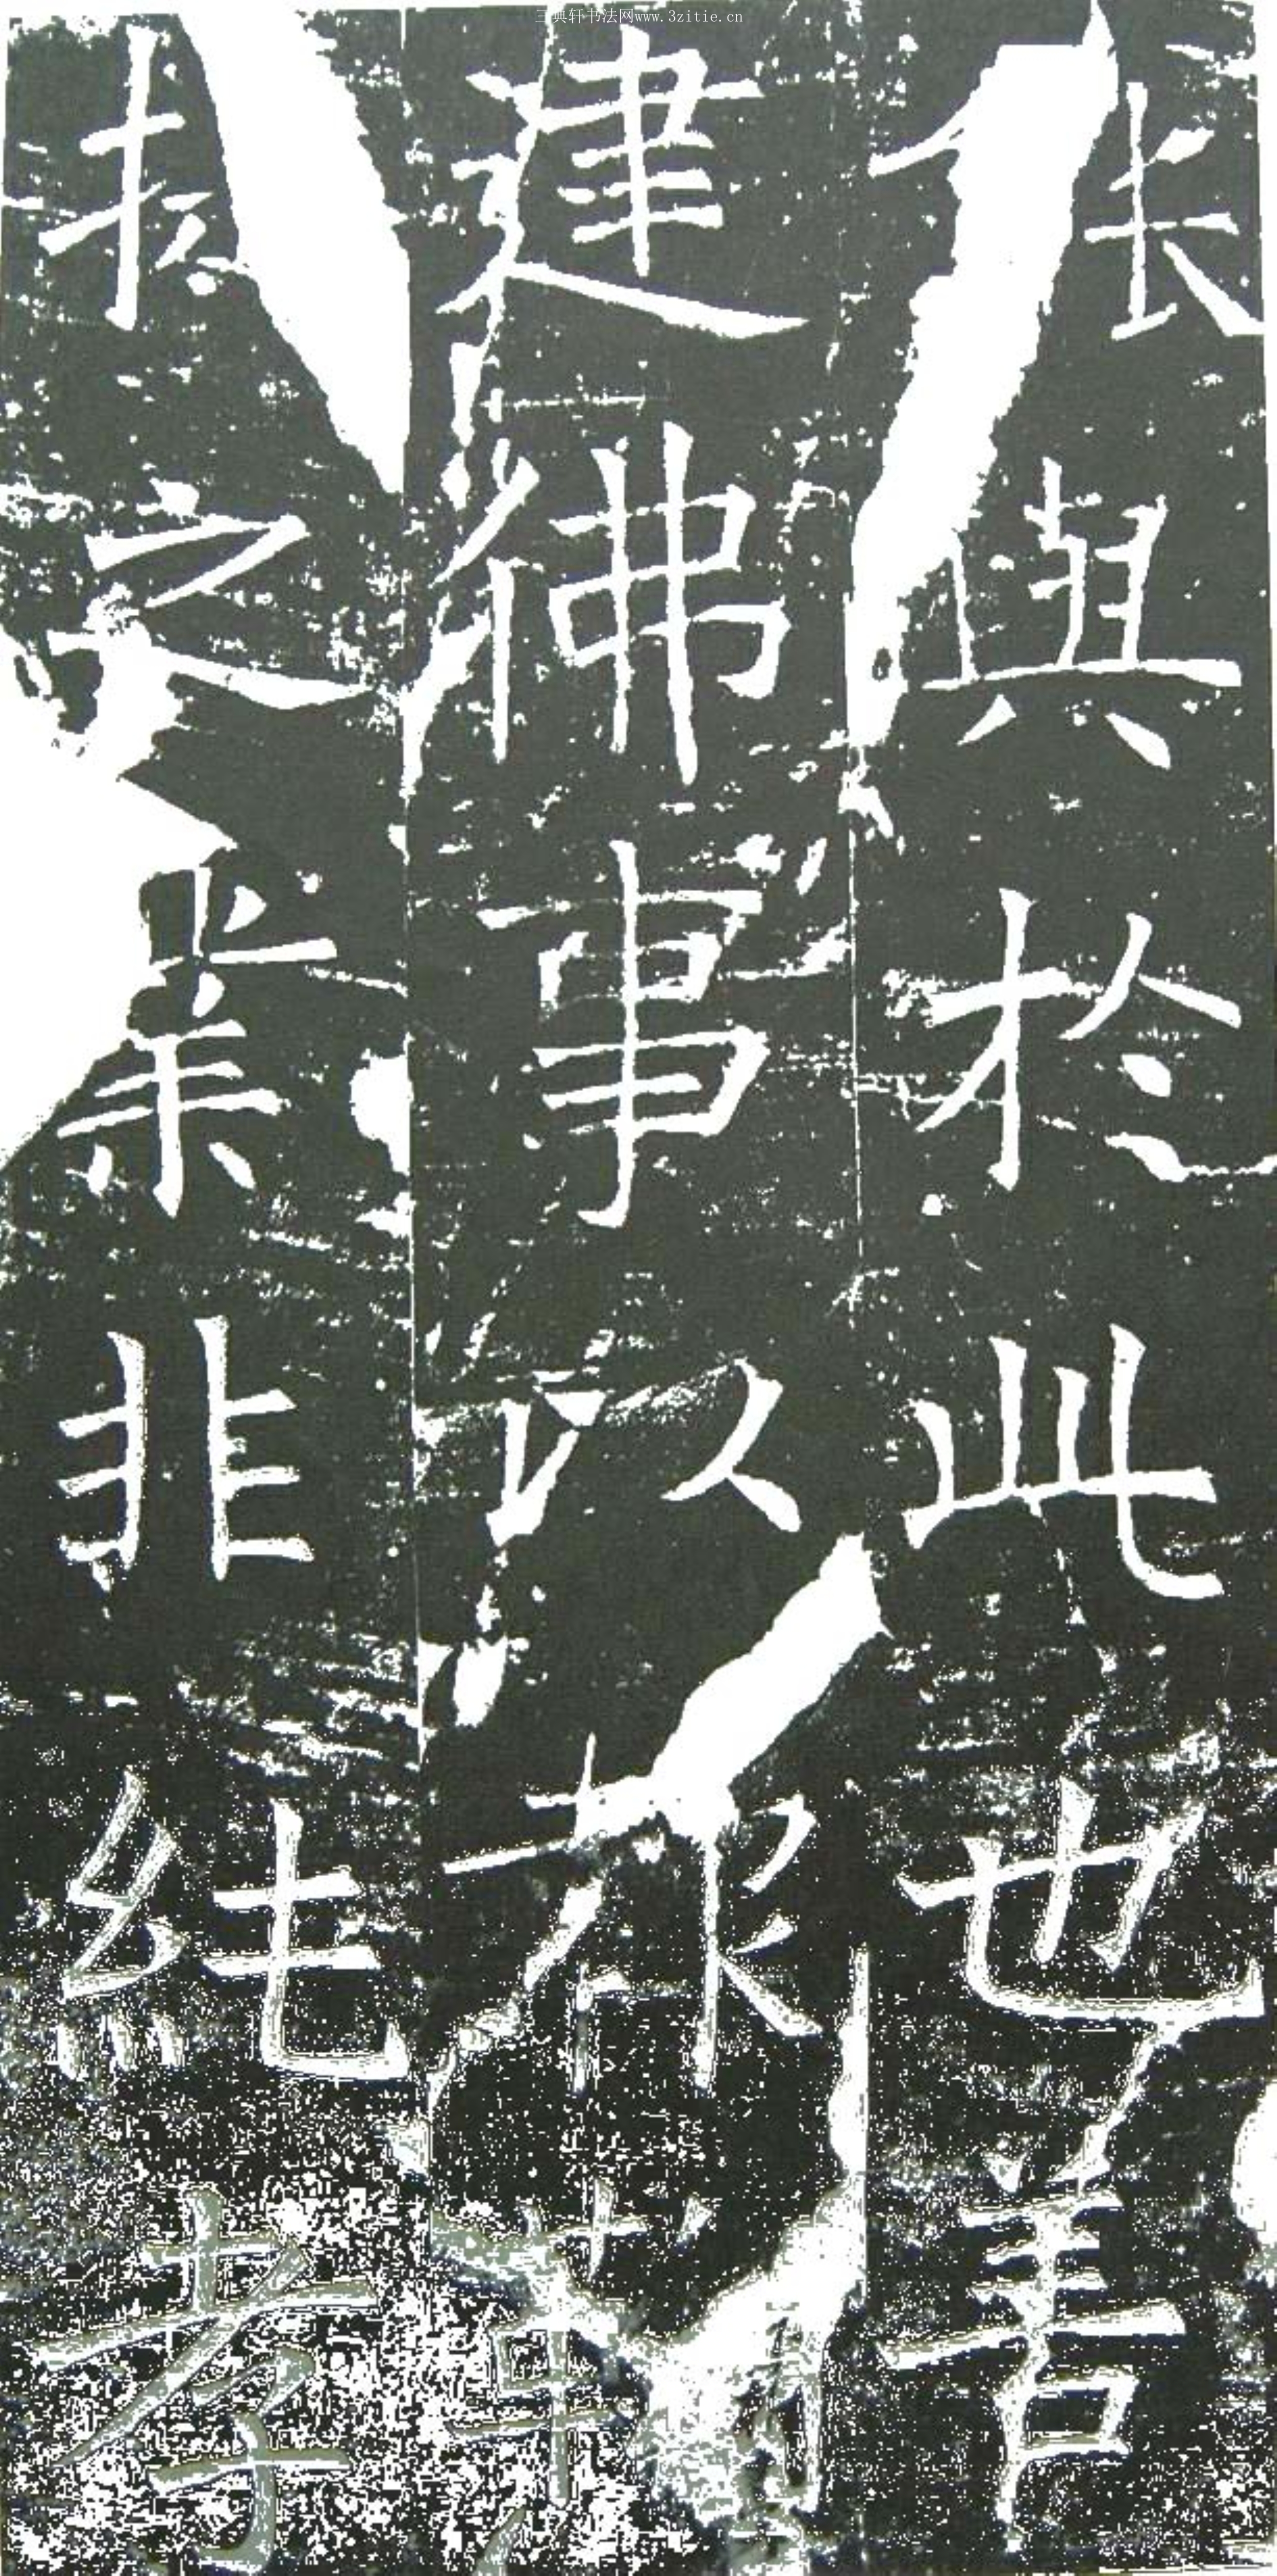 三典轩书法网www.3zitie.cn
張與於此也善
建佛事以報
扶之業非純孝